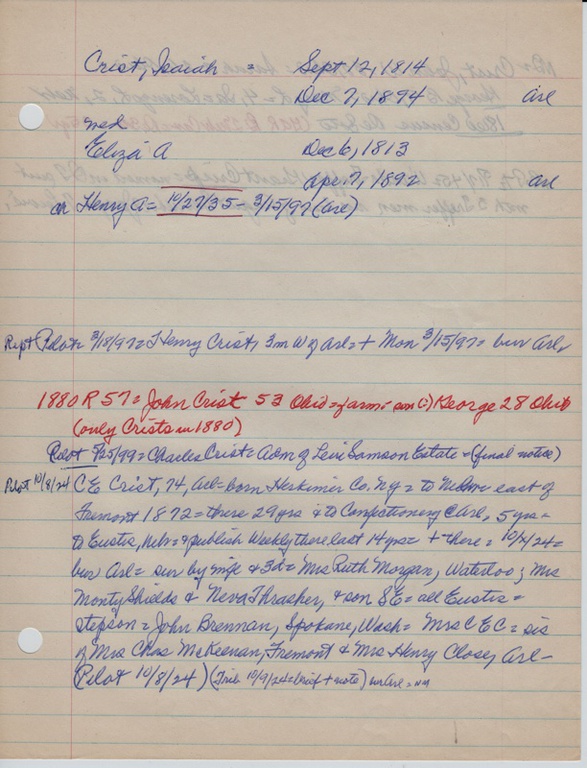 Crist, Isaiah = Sept. 12, 1814
Dec 7, 1894 Arl
med
Eliza A Dec 6, 1813
Apr. 7, 1892 Arl
or Henry A = 10/27/35 - 3/15/97 (Arl)
Rept Pilot 3/18/97 = Henry Crist, 3m W of Arl = + Mon 3/15/97 = bur Arl
1880 R 57 = John Crist 53 Ohio = farm = son (:) George 28 Ohio
(only Crists in 1880)
Pilot 5/25/99 = Charles Crist = Adm of Levi Samson Estate = (final notice)
Pilot 10/8/24 C E Crist, 74, Arl = born Herkimer Co. N.Y = to east of
Fremont 1872 = there 29 yrs = to Confectionery @ Arl, 5 yrs =
to Eustis, Neb = publish Weekly there last 14 yrs = + there = 10/ /24 =
bur Arl = sur by wife & 3d = Mrs Ruth Morgan, Waterloo; Mrs
Monty Shields & Neva Thrasher, & son S E = all Eustis =
stepson = John Brennan, Spokane, Wash = Mrs C E C = sis
of Mrs Chas McKeenan, Fremont & Mrs Henry Close, Arl -
Pilot 10/8/24) (Trib 10/9/24 = brief + note)